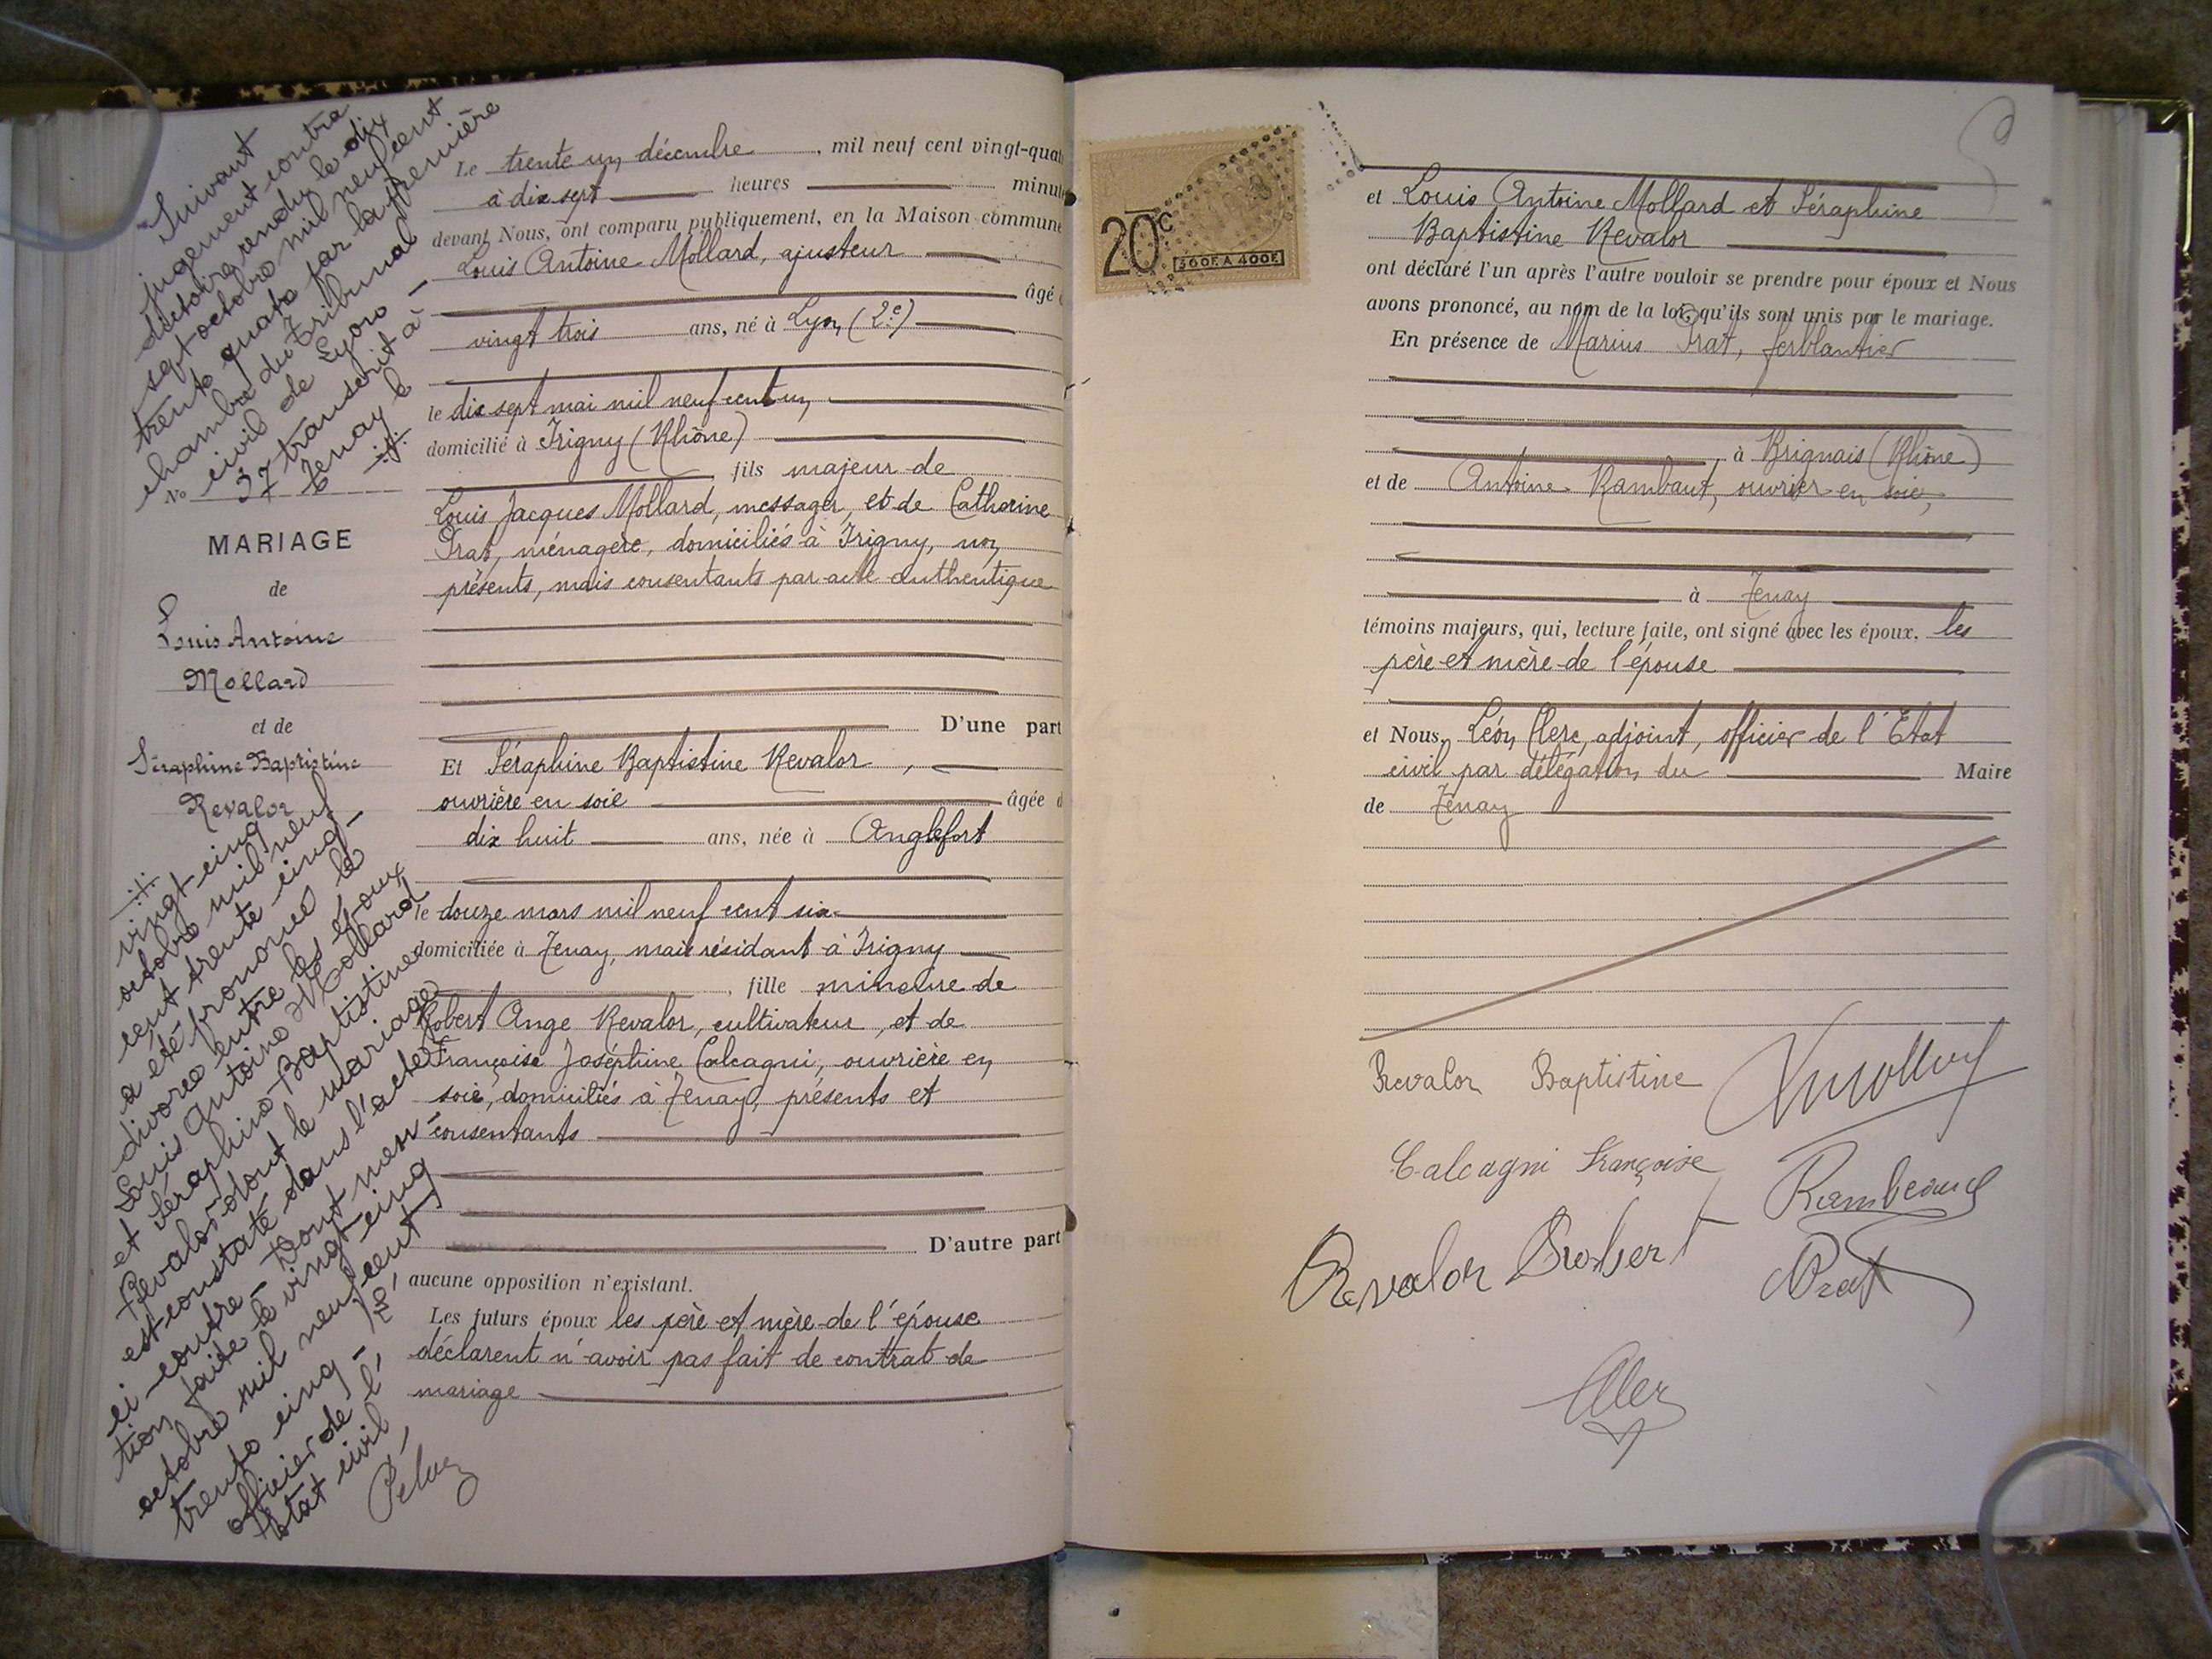 Suivant
jugement contra
dictoire rendu le dix
sept octobre mil neuf cent
trente quatre par la première
chambre du Tribunal
civil de Lyon –
No 37 transcrit à
Tenay le
MARIAGE
de
Louis Antoine
Mollard
et de
Séraphine Baptistine
Revalor
vingt cinq
octobre mil neuf
cent trente cinq –
a été prononcé le
divorce entre les époux
Louis Antoine Mollard
et Séraphine Baptistine
Revalor dont le mariage
est constaté dans l'acte
ci-contre – Dont men-
tion faite le vingt-cinq
octobre mil neuf cent
trente cinq –
officier de l'
Etat civil
Le trente un décembre, mil neuf cent vingt-quat
à dix sept heures minute
devant Nous, ont comparu publiquement, en la Maison commune
Louis Antoine Mollard, ajusteur
âgé d
vingt trois ans, né à Lyon (2e)
le dix sept mai mil neuf cent un
domicilié à Irigny (Rhône)
, fils majeur de
Louis Jacques Mollard, messager, et de Catherine
Prat, ménagère, domiciliés à Irigny, non
présents, mais consentants par acte authentique
D'une part
Et Séraphine Baptistine Revalor,
ouvrière en soie âgée d
dix huit ans, née à Anglefort
le douze mars mil neuf cent six
domiciliée à Tenay, mais résidant à Irigny
, fille mineure de
Robert Ange Revalor, cultivateur, et de
Françoise Joséphine Calcagni, ouvrière en
soie, domiciliés à Tenay, présents et
consentants
D'autre part
aucune opposition n'existant.
Les futurs époux les père et mère de l'épouse
déclarent n'avoir pas fait de contrat de
mariage
20c
360F A 400F
et Louis Antoine Mollard et Séraphine
Baptistine Revalor
ont déclaré l'un après l'autre vouloir se prendre pour époux et Nous
avons prononcé, au nom de la loi, qu'ils sont unis par le mariage.
En présence de Marius Prat, ferblantier
à Brignais (Rhône)
et de Antoine Rambaut, ouvrier en soie,
à Tenay
témoins majeurs, qui, lecture faite, ont signé avec les époux. les
père et mère de l'épouse
et Nous, Léon Clerc, adjoint, officier de l'Etat
civil par délégation du Maire
de Tenay
Revalor Baptistine
Calcagni Françoise
Rambeaud
Revalor Robert
Prat